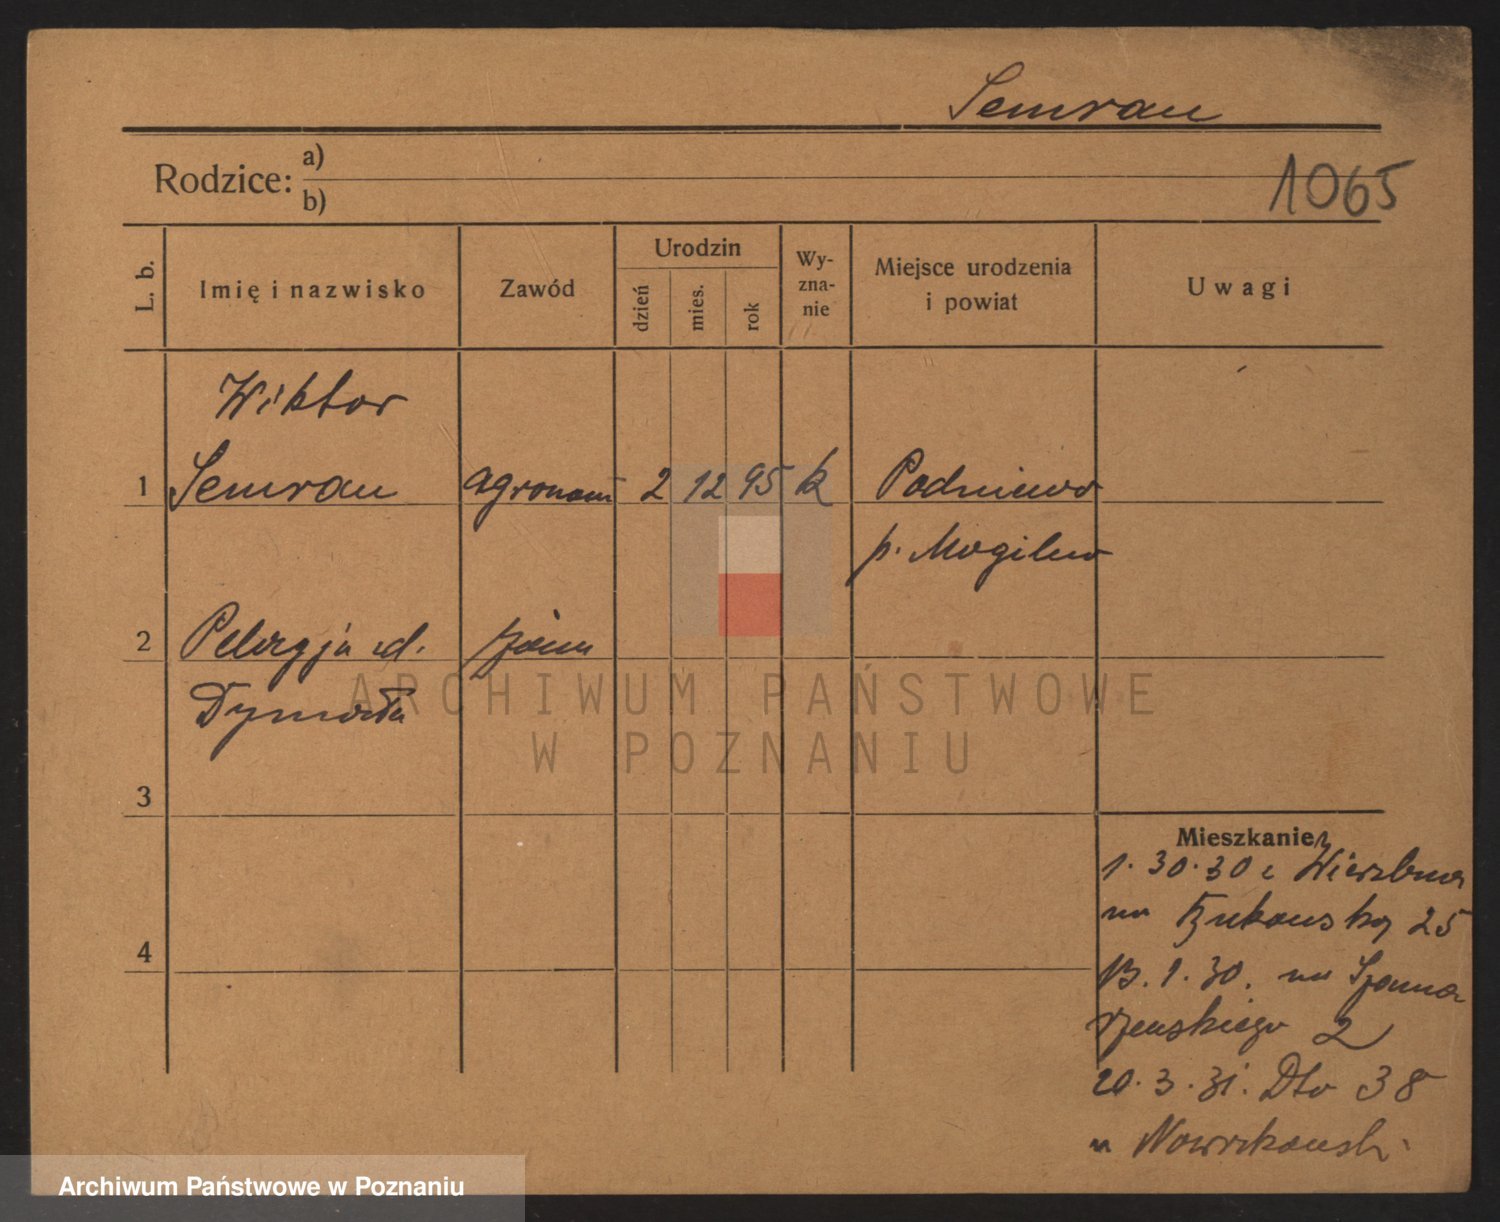 Semrau
Rodzice:
a)
b)
1065
L. b.
Imię i nazwisko
Zawód
Urodzin
dzień
mies.
rok
Wy-
zna-
nie
Miejsce urodzenia
i powiat
Uwagi
Wiktor
1 Semrau agronom 2 12 95 k Podniewo
p. Mogilno
2 Pelagja d.
Dymała
3
4
Mieszkanie
1. 30.30 z
na 25
13.1.30. na
2
20.3.31. Dto 38
u
ARCHIWUM PAŃSTWOWE
W POZNANIU
Archiwum Państwowe w Poznaniu